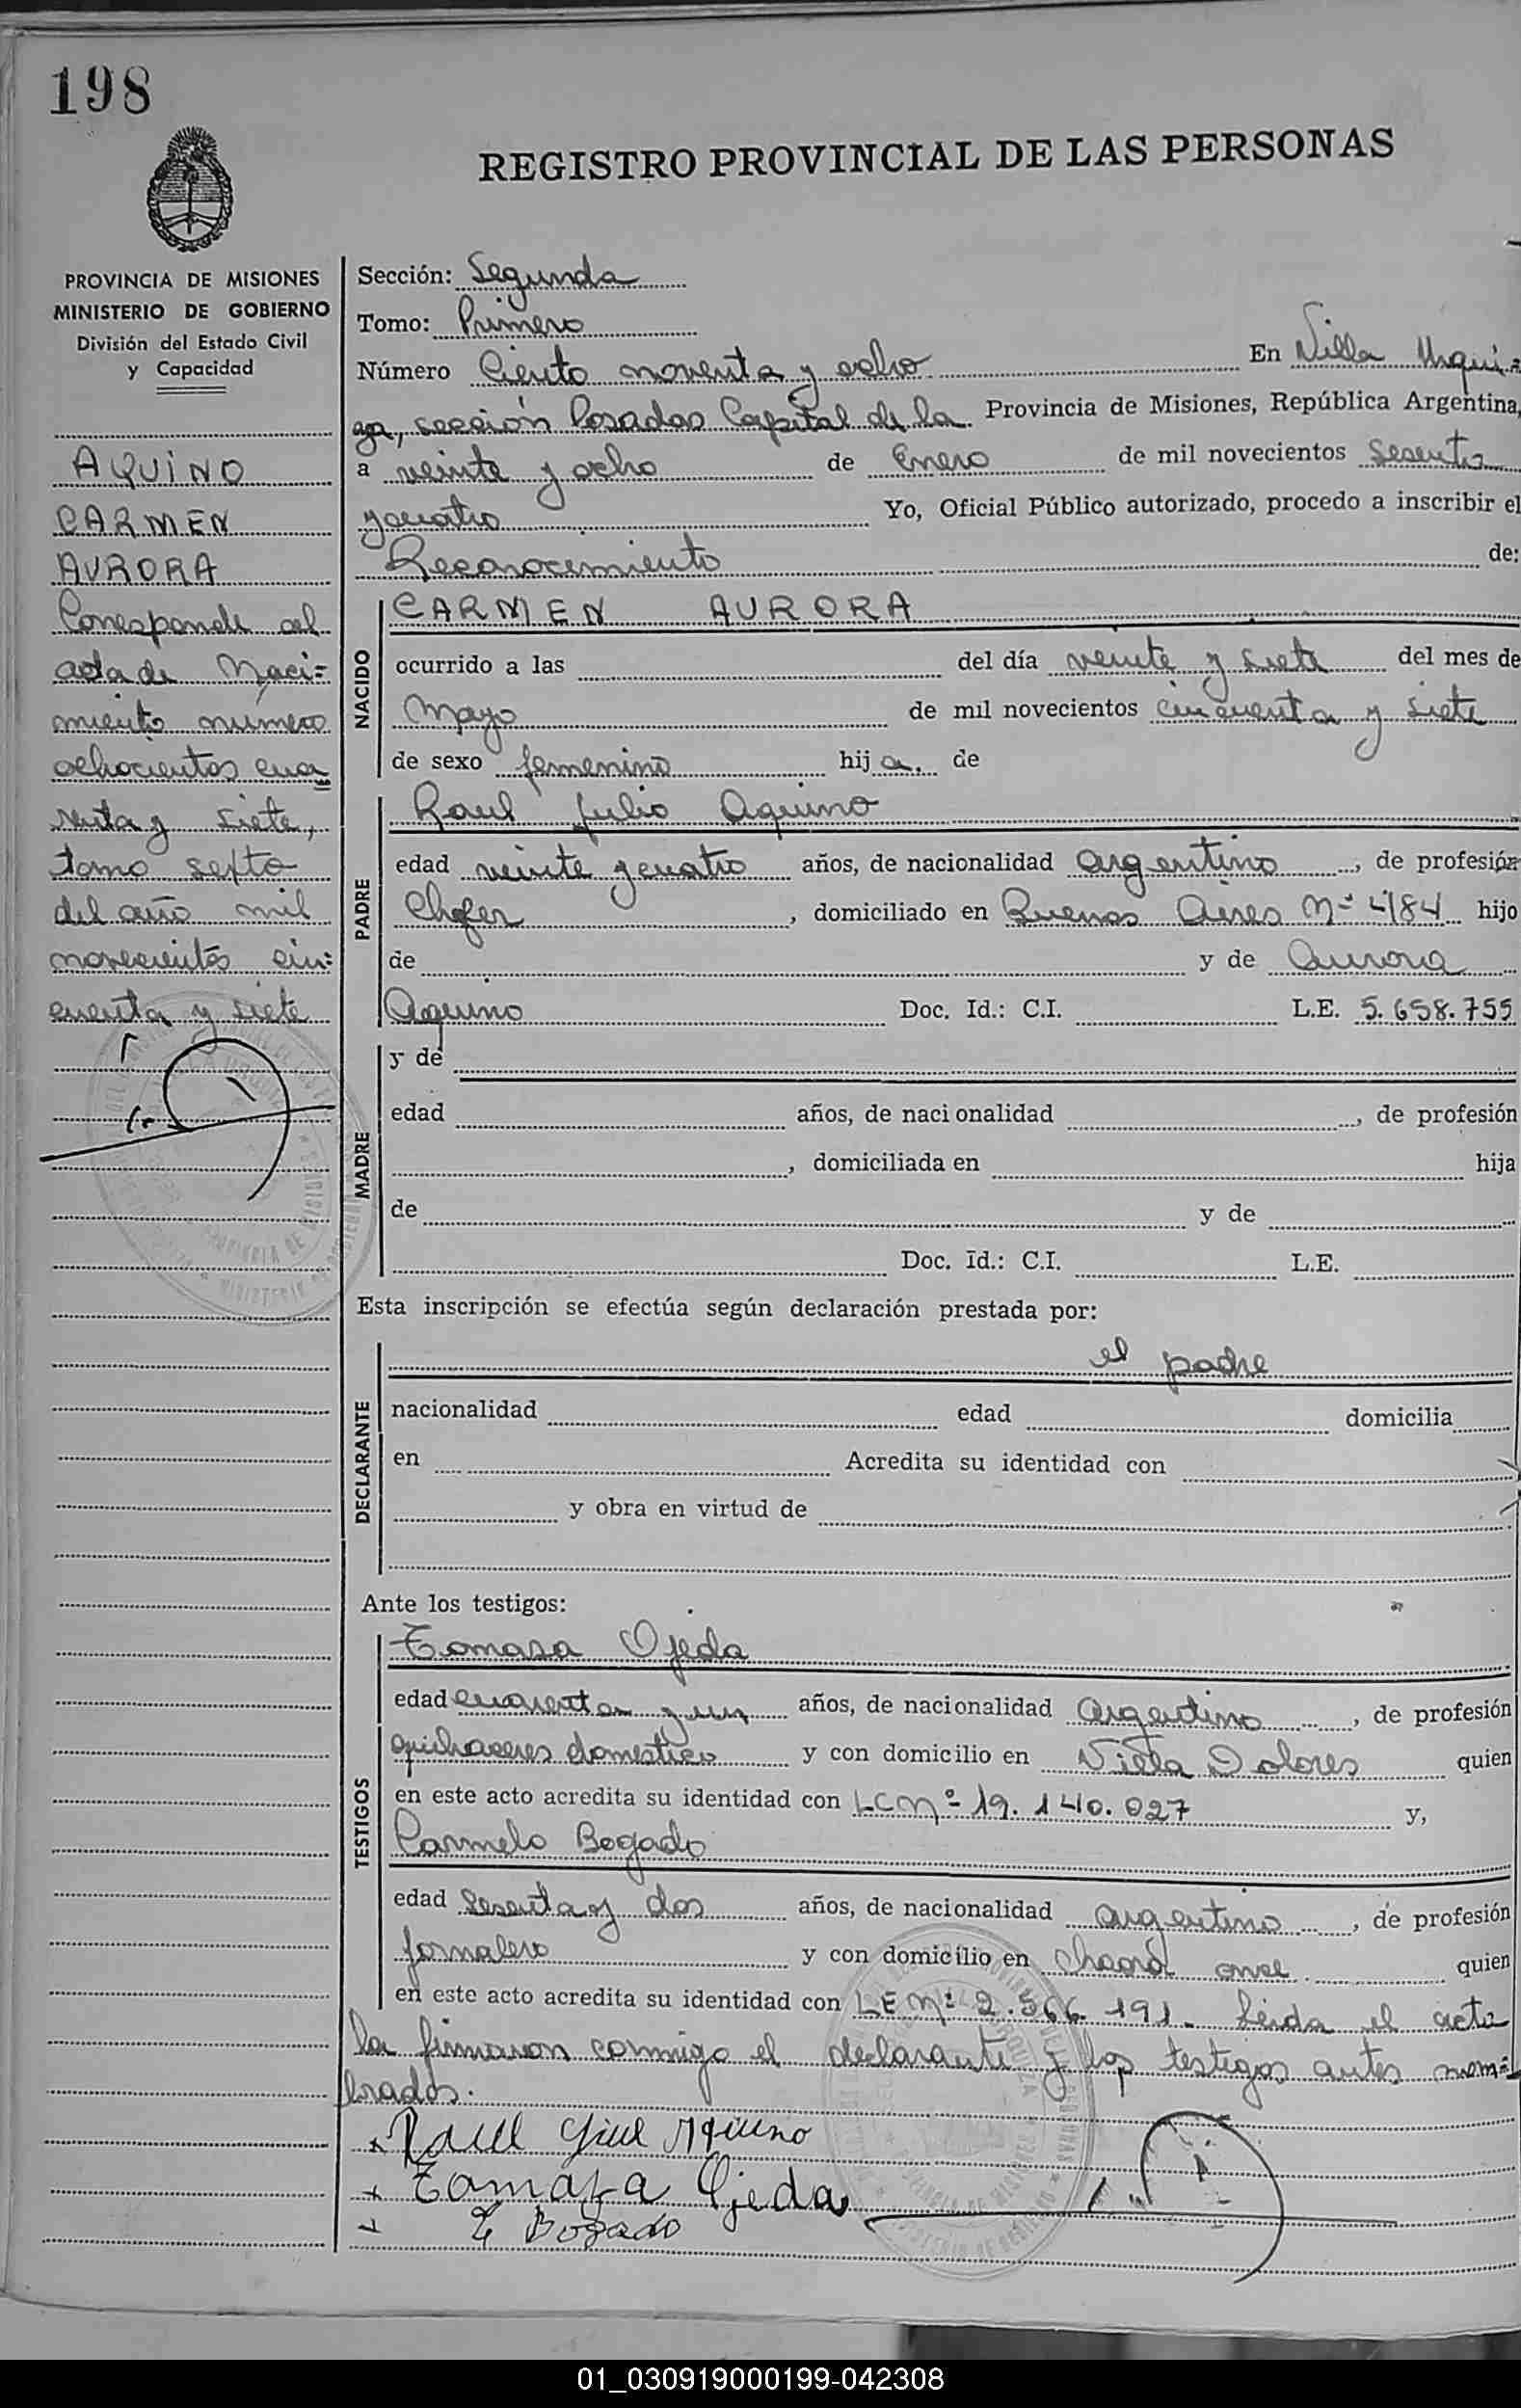 198
REGISTRO PROVINCIAL DE LAS PERSONAS
PROVINCIA DE MISIONES
MINISTERIO DE GOBIERNO
División del Estado Civil
y Capacidad
AQUINO
CARMEN
AURORA
Corresponde al
acta de Naci=
miento numero
ochocientos cua
renta y siete,
tomo sexto
del año mil
novecientos cin=
cuenta y siete
Sección: Segunda
Tomo: Primero
Número Ciento noventa y ocho En Villa Urqui-
za, sección Posadas Capital de la Provincia de Misiones, República Argentina,
a veinte y ocho de Enero de mil novecientos Sesenta
y cuatro Yo, Oficial Público autorizado, procedo a inscribir el
Reconocimiento de:
NACIDO
CARMEN AURORA
ocurrido a las del día veinte y siete del mes de
Mayo de mil novecientos cincuenta y siete
de sexo femenino hij a. de
PADRE
Raul Julio Aquino
edad veinte y cuatro años, de nacionalidad argentino, de profesión
Chofer, domiciliado en Buenos Aires Nº 484 hijo
de y de Aurora
Aquino Doc. Id.: C.I. L.E. 5.658.755
MADRE
y de
edad años, de naci onalidad , de profesión
, domiciliada en hija
de y de
Doc. Id.: C.I. L.E.
Esta inscripción se efectúa según declaración prestada por:
DECLARANTE
el padre
nacionalidad edad domicilia
en Acredita su identidad con
y obra en virtud de
Ante los testigos:
TESTIGOS
Tomasa Ojeda
edad cuarenta y un años, de nacionalidad argentino, de profesión
quihaceres domestico y con domicilio en Villa Dolores quien
en este acto acredita su identidad con LC Nº 19.140.027 y,
Carmelo Bogado
edad sesenta y dos años, de nacionalidad argentino, de profesión
jornalero y con domicilio en chacra once quien
en este acto acredita su identidad con LE Nº 2.566.191. Leida el acta
la firmaron conmigo el declarante y los testigos antes nom=
brados.
Raul Aquino
Tomasa Ojeda
Bogado
01_030919000199-042308